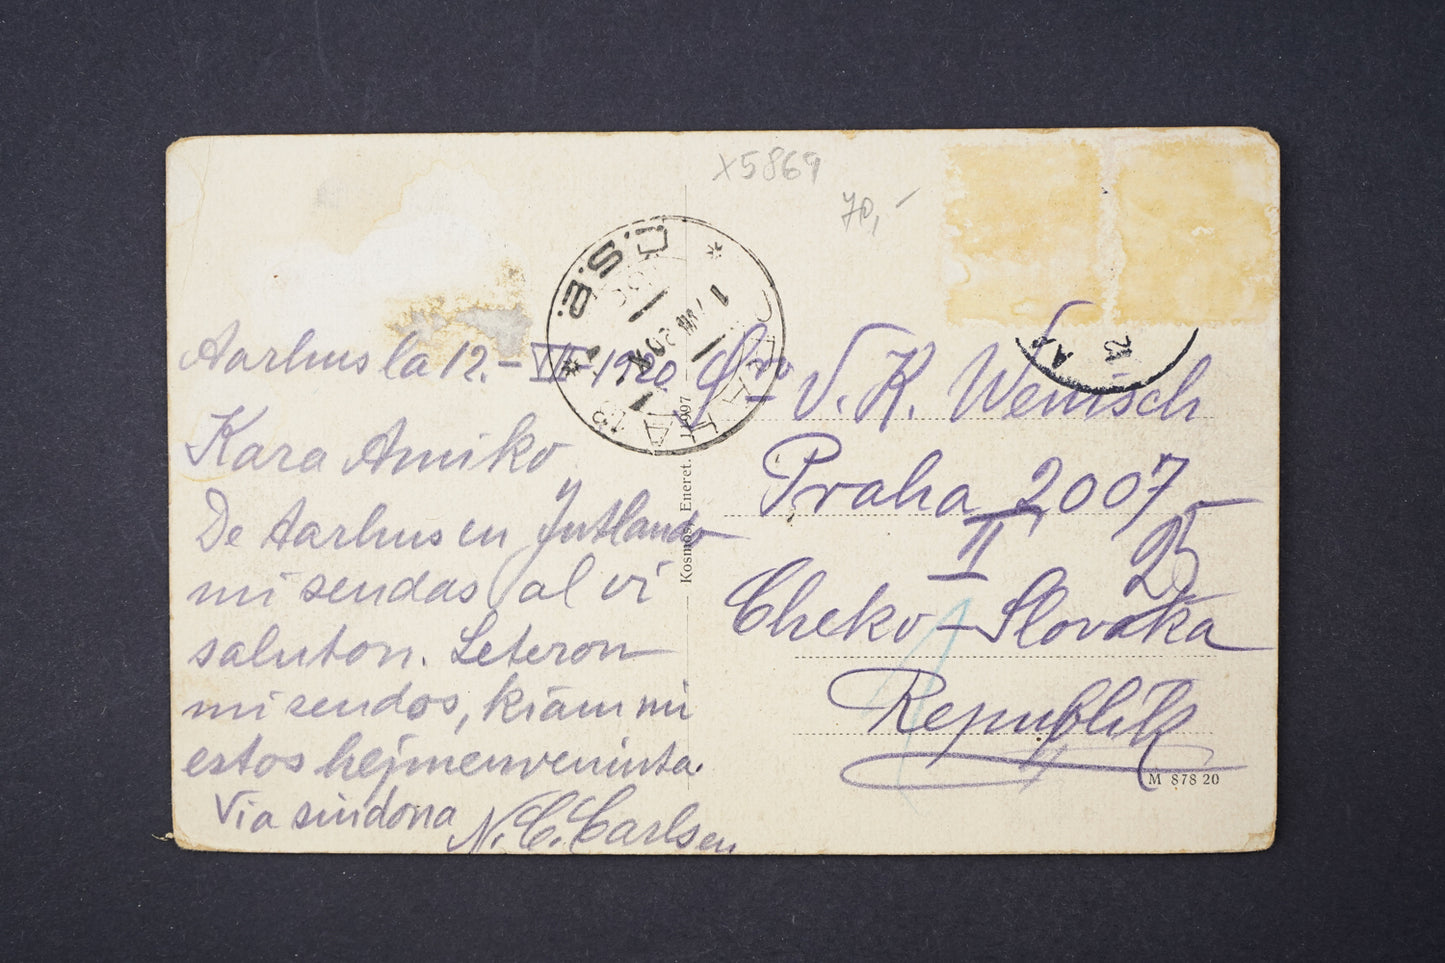 X5869
70,-
Č.S.P.
Aarhus la 12.-VII-1920
Kara Amiko
De Aarhus en Jutlando
mi sendas al vi
saluton. Leteron
mi sendos, kiam mi
estos hejmenveninta.
Via sindona N.C. Carlsen
Kosmos, Eneret.
V. K. Wenisch
Praha 2007-
II 25
Cheko-Slovaka
Republik
M 878 20